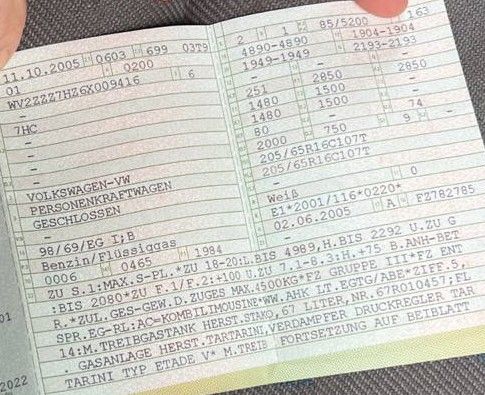 11.10.2005 0603 699 0379
01 0200
WV2ZZZ7HZ6X009416 6
–
7HC
–
–
–
VOLKSWAGEN-VW
PERSONENKRAFTWAGEN
GESCHLOSSEN
–
98/69/EG I;B
Benzin/Flüssiggas
0006 0465 1984
2 1 85/5200 163
4890-4890 1904-1904
1949-1949 2193-2193
– – –
251 2850 2850
1480 1500 –
1480 1500 –
80 – 74
2000 750 9 –
205/65R16C107T
205/65R16C107T
–
Weiß 0
E1*2001/116*0220*
02.06.2005 A FZ782785
–
ZU S.1:MAX.S-PL.*ZU 18-20:L.BIS 4989,H.BIS 2292 U.ZU G
:BIS 2080*ZU F.1/F.2:+100 U.ZU 7.1-8.3:H.+75 B.ANH-BET
R.*ZUL.GES-GEW.D.ZUGES MAX.4500KG*FZ GRUPPE III*FZ ENT
SPR.EG-RL:AC-KOMBILIMOUSINE*WW.AHK LT.EGTG/ABE*ZIFF.5,
14:M.TREIBGASTANK HERST.STAKO,67 LITER,NR.67R010457;FL
. GASANLAGE HERST.TARTARINI,VERDAMPFER DRUCKREGLER TAR
TARINI TYP ETADE V* M.TREIB FORTSETZUNG AUF BEIBLATT
01
2022